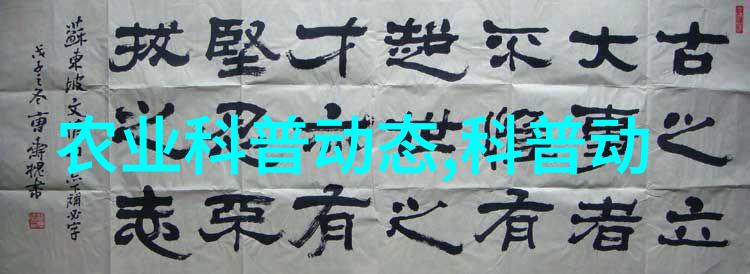 古之立
大事者
不惟有
超世之
才亦有
堅忍不
拔之志
蘇東坡文 下補必字
戊子之冬曹壽 書
农业科普动态,科普动